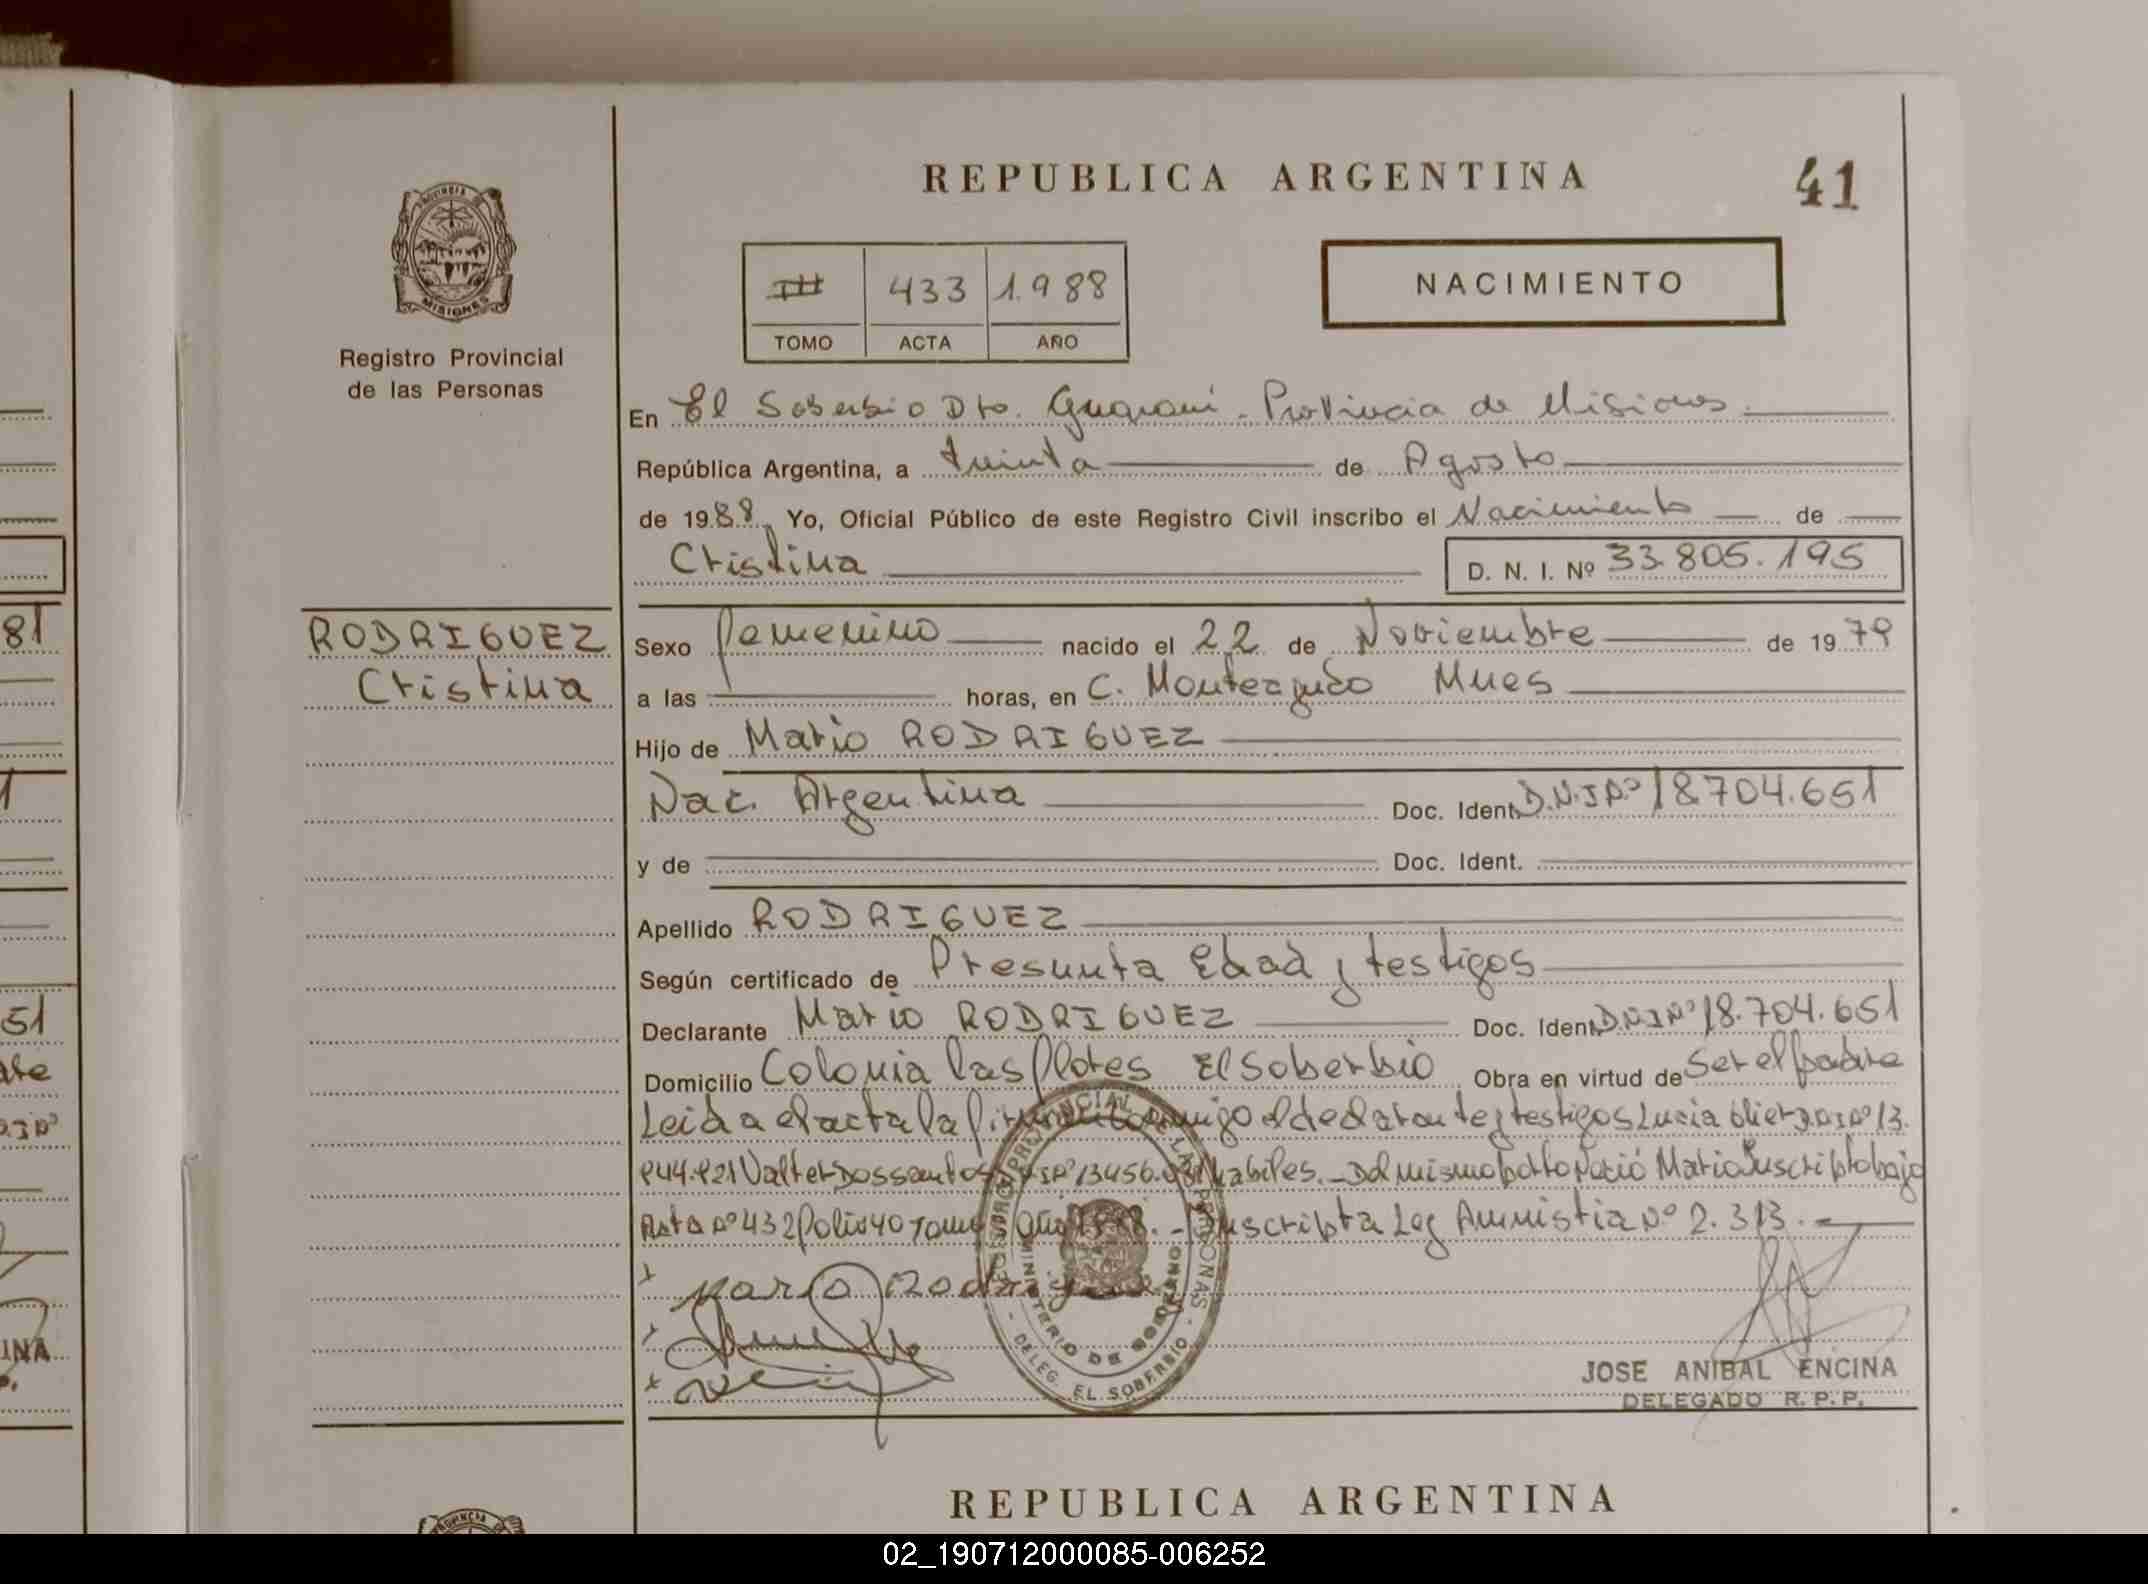 REPUBLICA ARGENTINA
41
433 1.988
TOMO ACTA AÑO
NACIMIENTO
PROVINCIA DE
MISIONES
Registro Provincial
de las Personas
En El Soberbio Dto. Guarani - Provincia de Misiones.
República Argentina, a treinta de Agosto
de 1988, Yo, Oficial Público de este Registro Civil inscribo el Nacimiento de
Cristina
D. N. I. Nº 33.805.195
RODRIGUEZ
Cristina
Sexo femenino nacido el 22 de Noviembre de 1979
a las horas, en C. Monteagudo Mnes
Hijo de Mario RODRIGUEZ
Nac. Argentina Doc. Ident. D.N.I Nº 18.704.651
y de Doc. Ident.
Apellido RODRIGUEZ
Según certificado de Presunta Edad y testigos
Declarante Mario RODRIGUEZ Doc. Ident. D.N.I Nº 18.704.651
Domicilio Colonia las flores El Soberbio Obra en virtud de Ser el padre
Leida el acta la firman conmigo el declarante y testigos Lucia D.N.I Nº 13.
Valter Dossantos habiles. - Del mismo parto Nació Mario Inscripto bajo
Acta Nº 432 folio 40 Tomo año 1988. - Inscripta Ley Amnistia Nº 2.313. -
Mario Rodriguez
DELEG. EL SOBERBIO
JOSE ANIBAL ENCINA
DELEGADO R. P. P.
81
1
51
INA
P.
REPUBLICA ARGENTINA
02_190712000085-006252